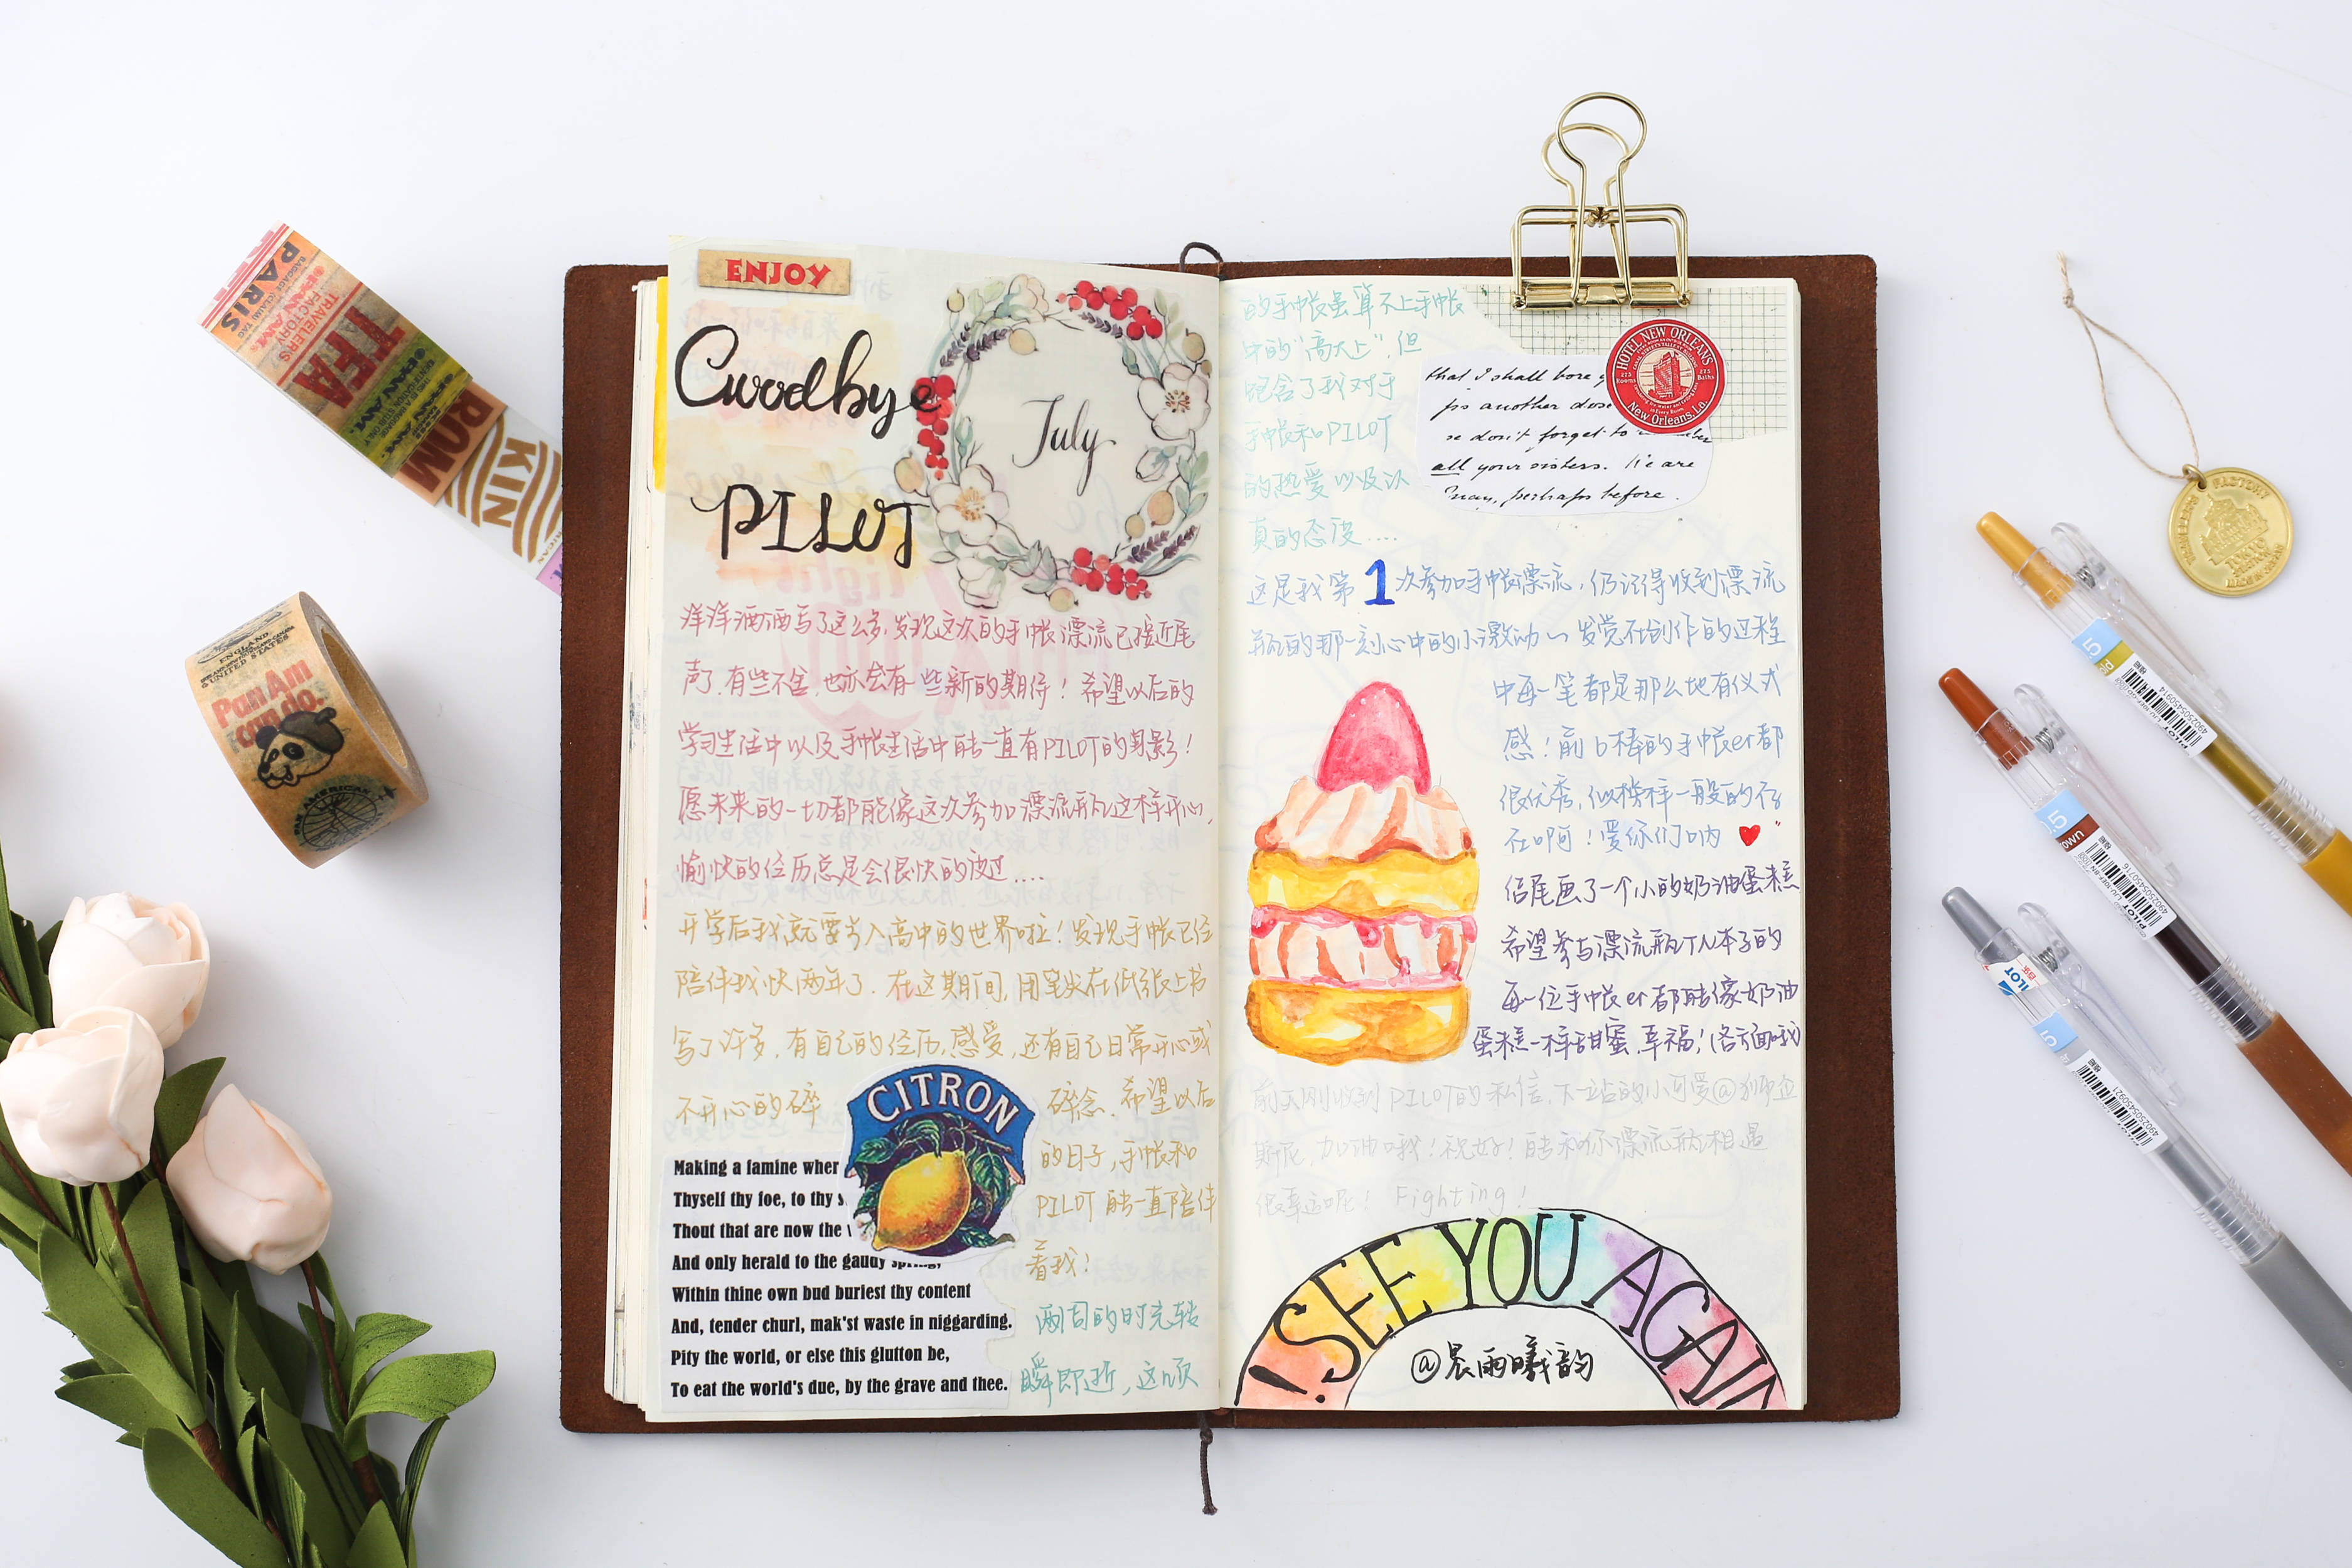 ENJOY
Goodbye
July
PILOT
洋洋洒洒写了这么多,发现这次的手帐漂流已接近尾
声了.有些不舍,也亦会有一些新的期待!希望以后的
学习生活中以及手帐生活中能一直有PILOT的身影!
愿未来的一切都能像这次参加漂流瓶这样开心,
愉快的经历总是会很快的度过....
开学后我就要步入高中的世界啦!发现手帐已经
陪伴我快两年了.在这期间,用笔尖在纸张上书
写了许多,有自己的经历,感受,还有自己日常开心或
不开心的碎
碎念.希望以后
的日子,手帐和
PILOT 能一直陪伴
着我!
两周的时光转
瞬即逝,这次
CITRON
Making a famine wher
Thyself thy foe, to thy s
Thout that are now the
And only herald to the gaudy spring,
Within thine own bud buriest thy content
And, tender churl, mak'st waste in niggarding.
Pity the world, or else this glutton be,
To eat the world's due, by the grave and thee.
的手帐虽算不上手帐
中的"高大上",但
饱含了我对手
手帐和PILOT
的热爱以及认
真的态度....
that I shall bore y
ps another dose
se don't forget to
all your sisters. We are
may, perhaps before.
HOTEL NEW ORLEANS
New Orleans, La.
这是我第1次参加手帐漂流,仍记得收到漂流
瓶的那一刻心中的小激动~发觉在创作的过程
中每一笔都是那么地有仪式
感!前6棒的手帐er都
很优秀,似榜样一般的存
在啊!爱你们呐
结尾画了一个小的奶油蛋糕
希望参与漂流瓶TN本子的
每一位手帐er都能像奶油
蛋糕一样甜蜜,幸福!(各方面哦)
前天刚收到PILOT的私信,下一站的小可爱@狮
斯尼,加油哦!祝好!能和你漂流瓶相遇
很幸运呢! Fighting!
!SEE YOU AGAIN
@晨雨曦韵
PARIS
TRAVELER'S
FACTORY
PAN AM
TFA
PAN AM.
ROM
KIN
ENGLAND
UNITED STATES
Pan Am
can do.
PAN AMERICAN
FACTORY
TOKYO
PILOT
4902505450914
PILOT
4902505450716
PILOT
4902505450921